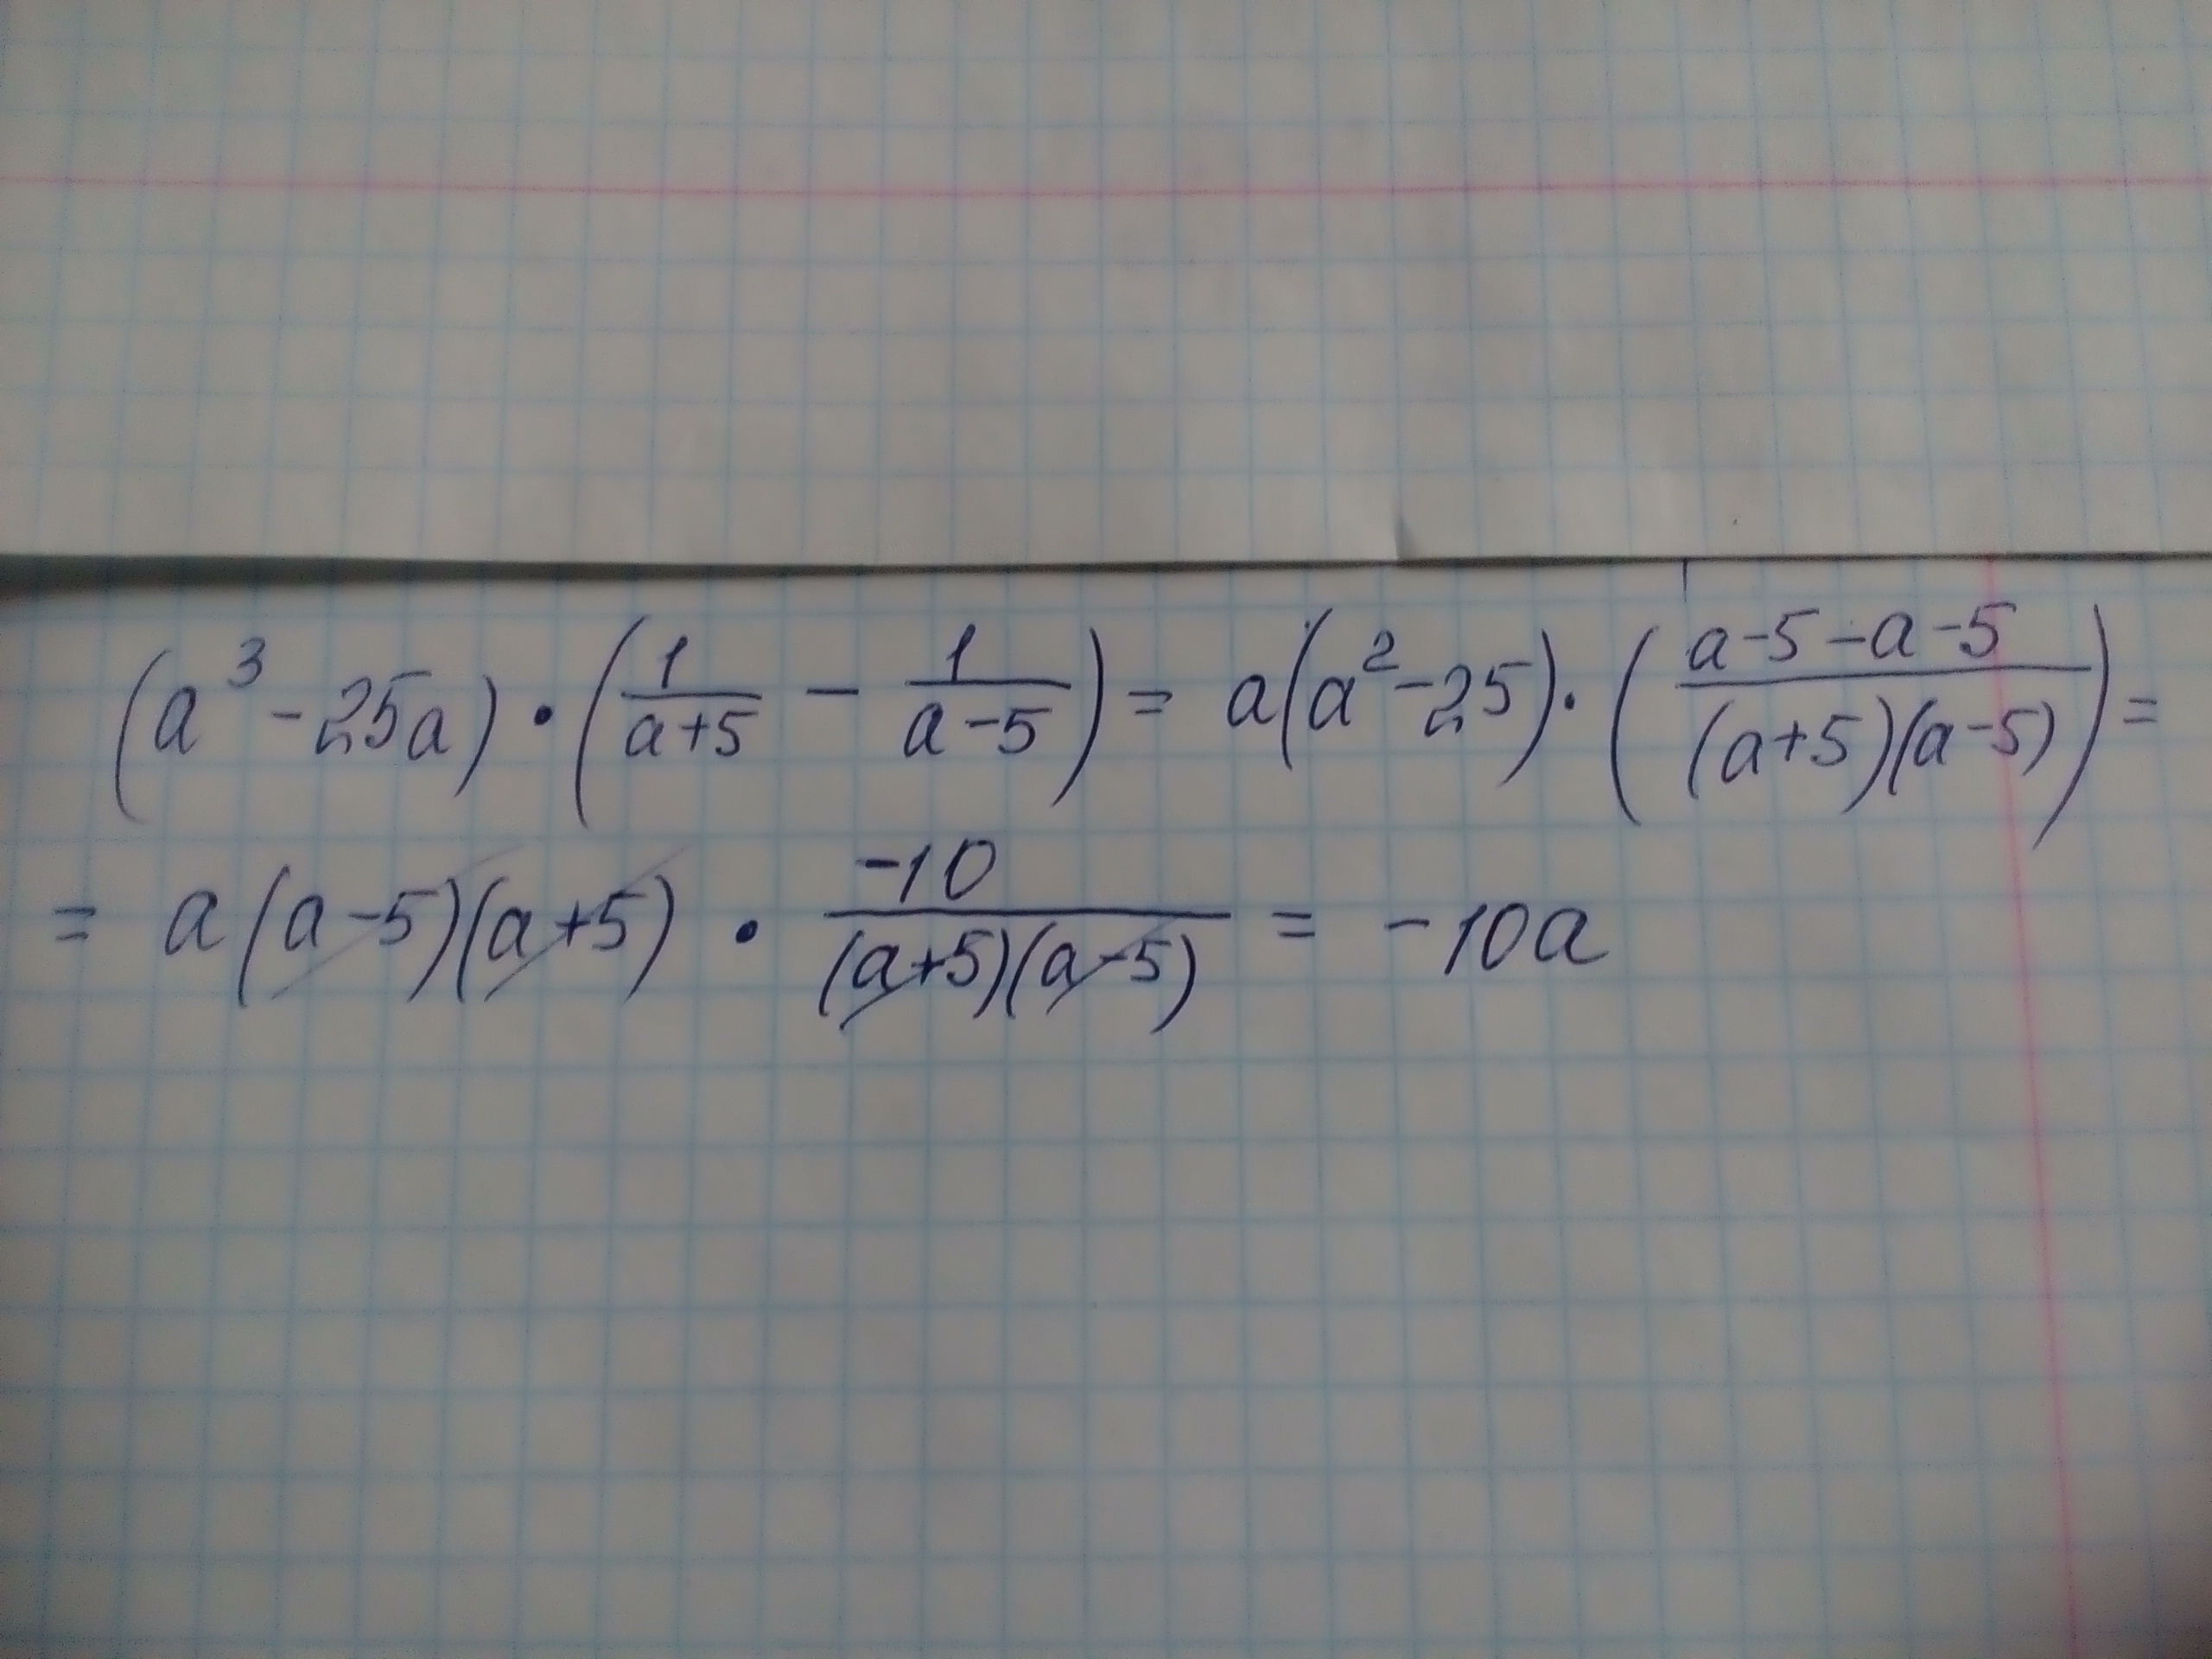 (a³ - 25a) · (1/(a+5) - 1/(a-5)) = a(a² - 25) · ((a-5-a-5)/((a+5)(a-5))) =
= a(a-5)(a+5) · -10/((a+5)(a-5)) = -10a